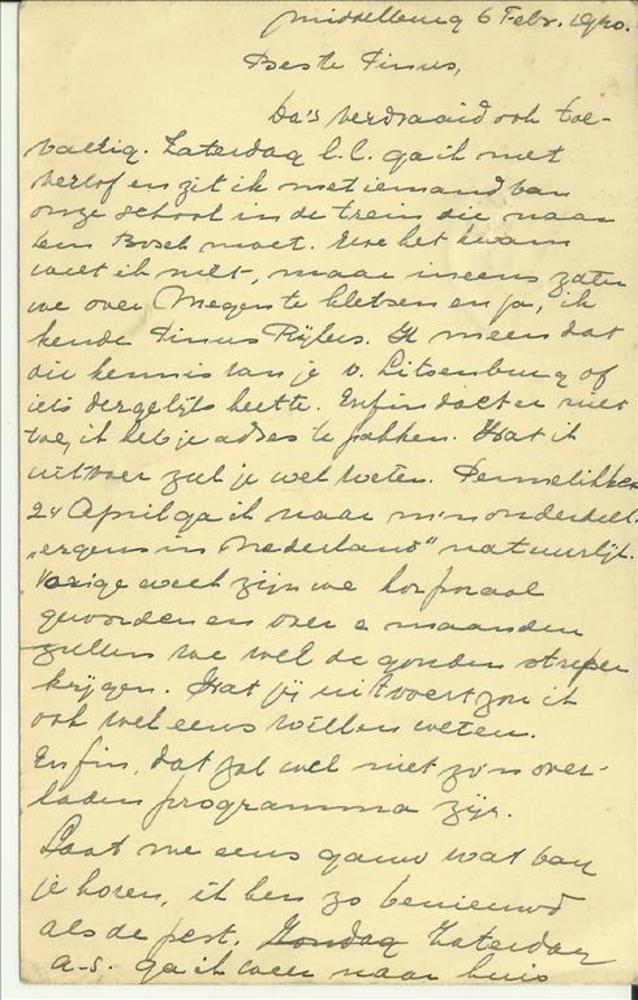 Middelburg 6 Febr. 1940.
Beste Pinus,
Da's verdraaid ook toe-
vallig. Zaterdag l.l. ga ik met
verlof en zit ik met iemand van
onze school in de trein die naar
den Bosch moet. Hoe het kwam
weet ik niet, maar ineens zaten
we over Megen te kletsen en ja, ik
kende Pinus Rijkers. Ik meen dat
die kennis van je v. Litsenburg of
iets dergelijks heette. Enfin doet er niet
toe, ik heb je adres te pakken. Wat ik
uitvoer zul je wel weten.
24 April ga ik naar m'n onderdeel
"ergens in Nederland" natuurlijk.
Vorige week zijn we korporaal
geworden en over 2 maanden
zullen we wel de gouden strepen
krijgen. Wat jij uitvoert zou ik
ook wel eens willen weten.
Enfin, dat zal wel niet zo'n over-
laden programma zijn.
Laat me eens gauw wat van
je horen, ik ben zo benieuwd
als de pest. Zondag Zaterdag
a.s. ga ik weer naar huis